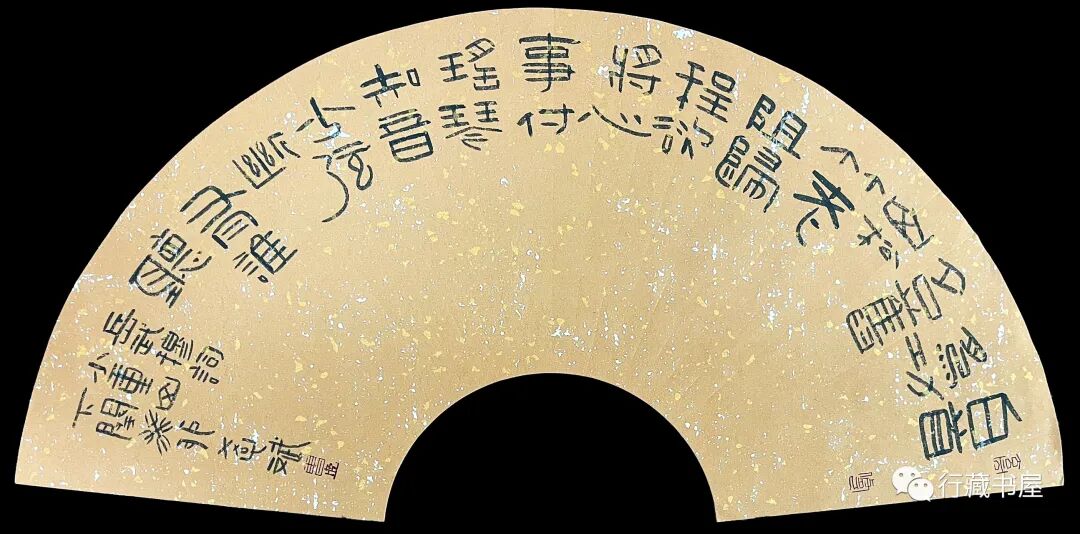 白首
為功
名舊
山松
竹老
阻歸
程欲
將心
事付
瑤琴
知音
少弦
斷
有誰
聽
岳武穆詞
小重山
下闋癸卯
行藏书屋